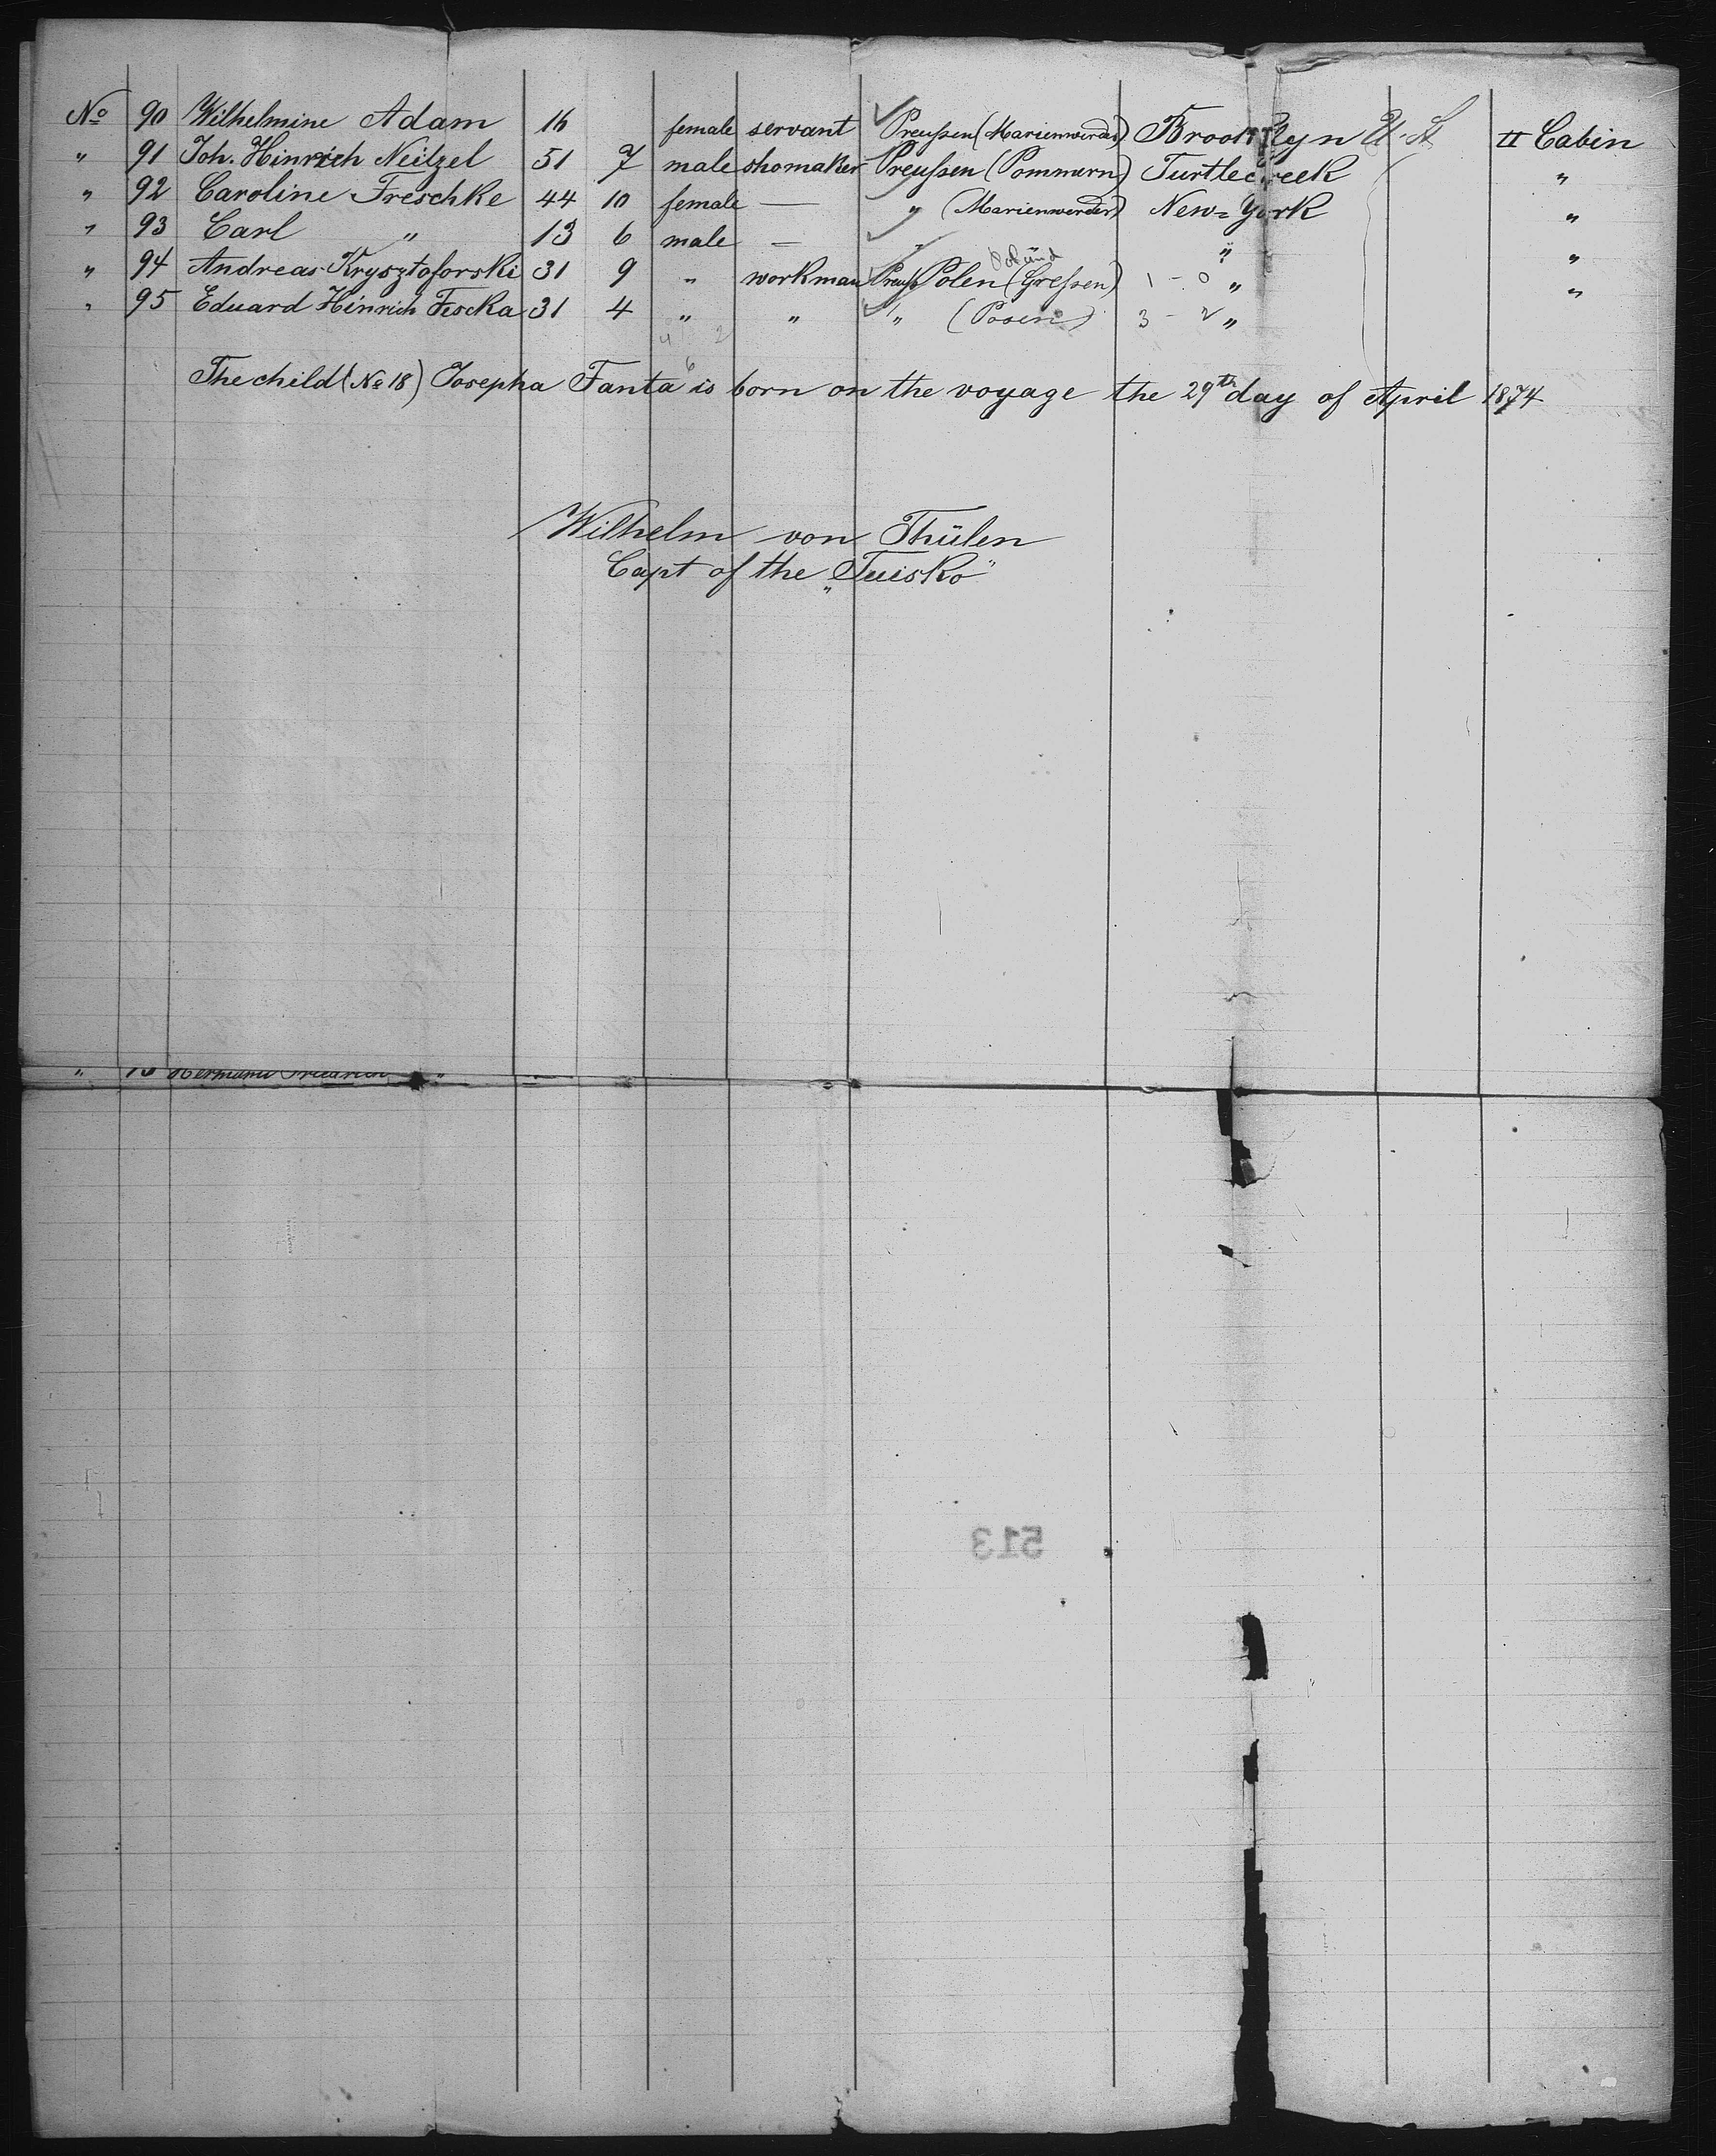 No 90 Wilhelmine Adam 16 female servant Preußen (Marienwerder) Brooklyn U. St. II Cabin
" 91 Joh. Hinrich Neitzel 51 7 male shomaker Preußen (Pommern) Turtlecreek "
" 92 Caroline Freschke 44 10 female — " (Marienwerder) New=York "
" 93 Carl " 13 6 male — " " "
" 94 Andreas Krysztoforski 31 9 " workman Preuß Polen (Greßen) 1 - 0 " "
" 95 Eduard Hinrich Fescka 31 4 " " " (Posen) 3 - 2 "
4 2
6
The child (No 18) Josepha Fanta is born on the voyage the 29th day of April 1874
Wilhelm von Thülen
Capt of the „Tuisko"
" Hermann Friedrich "
513